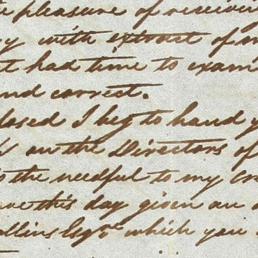 pleasure of receiving
with extract of
had time to exam
nd correct.
losed I beg to hand y
on the Directors of
the needful to my cr
this day given an
ollins Esqre which you